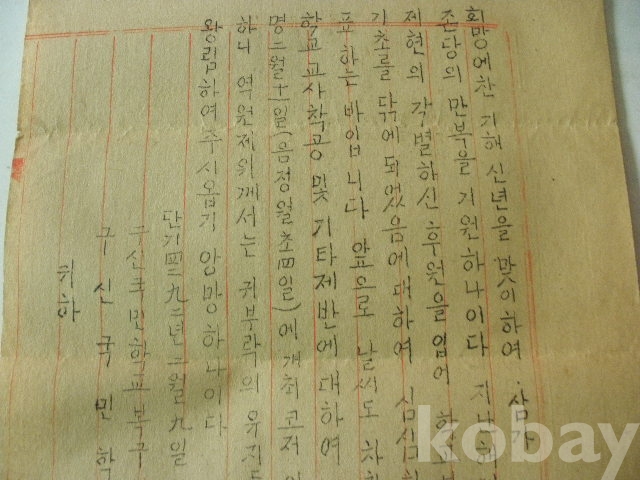 희망에찬 기해신년을 맞이하여 삼가
존당의 만복을 기원하나이다 지난해
제현의 각별하신 후원을 입어 학교
기초를 닦에 되었음에 대하여 심심한
표 하는 바입니다 앞으로 날씨도 차차
학교 교사착공 및 기타제반에 대하여
명二월十一일(음정월초四일)에 개최코저
하니 역원제위께서는 귀부락의 유지
왕림하여 주시옵기 앙망하나이다
단기四二九二년 二월 九일
구신국민학교 복구
구신국민학
귀하
kobay